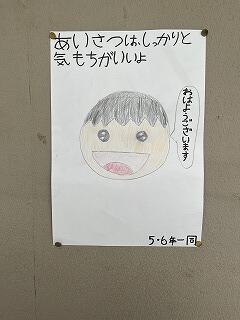 あいさつは、しっかりと
気もちがいいよ
おはようございます
5・6年一同